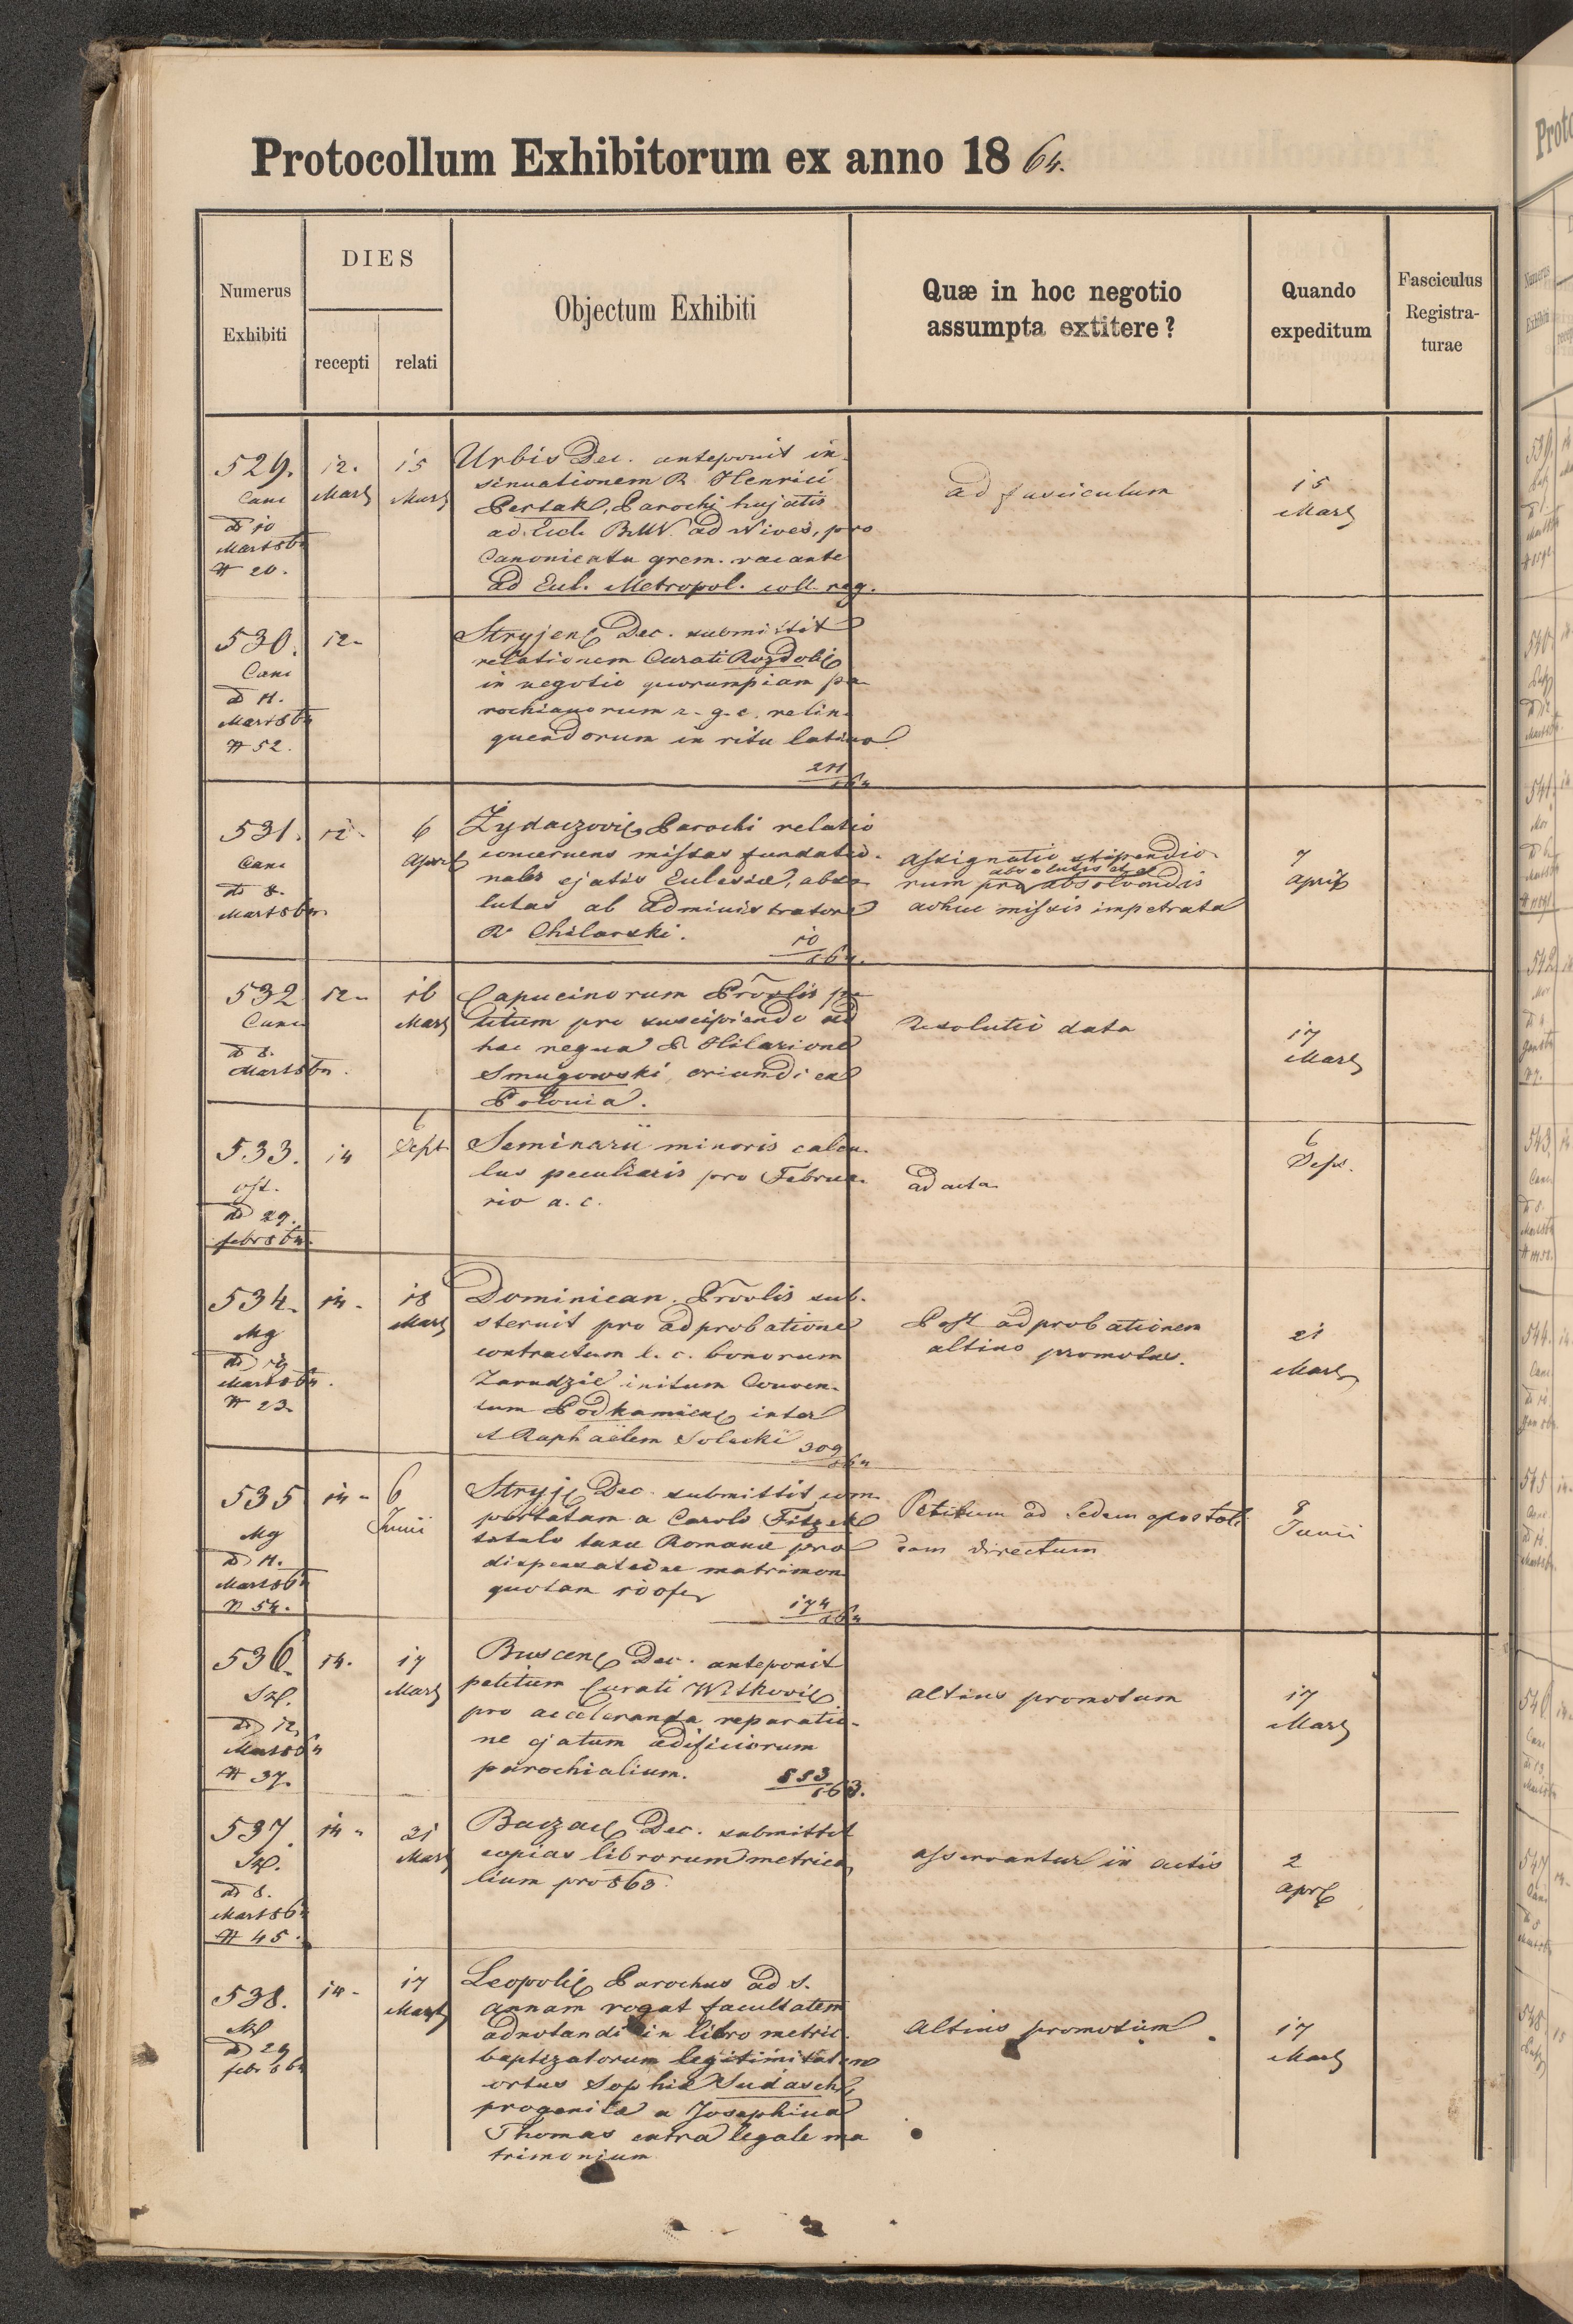 Protocollum Exhibitorum ex anno 1864.
Numerus Exhibiti
DIES
recepti
relati
Objectum Exhibiti
Quæ in hoc negotio
assumpta extitere?
Quando
expeditum
Fasciculus
Registra-
turae
529.
Cane
d 10
Mart 864
N 20.
12.
Mart
15
Mart
Urbis Dec. anteponit in-
sinuationem R. Henrici
Parochi hujatis
ad Eccl. BMV. ad Nives, pro
Canonicatu grem. vacante
ad Eccl. Metropol. coll. rag.
ad fasciculum
15
Mart
530.
Cane
d 11.
Mart 864
N 52.
12-
Stryjen Dec. submittit
relationem Curati Rozdoli
in negotio quorumpiam pa-
rochianorum r. g. c. relin-
quendorum in ritu latino
211
864
531.
Cane
d 8.
Mart 864
12-
6
April
Żydaczovi Parochi relatio
concernens missas fundatio-
nales ejatis Ecclesiæ, abso-
lutas ab administratore
R Chilarski.
10
864.
assignatio stipendio-
absolutis et
rum pro absolvendis
adhuc missis impetrata
7
April
532
Cane
d 8.
Mart 864.
12-
16
Mart
Capucinorum Provlis pe-
titum pro suscipiendo ad
hac regna P. Hilarione
Smugowski, oriundi ex
Polonia.
Resolutio data
17
Mart
533.
ost.
d 29.
febr 864.
14
6
Sept.
Seminarii minoris calcu-
lus peculiaris pro Februa-
rio a. c.
ad acta
6
Sept.
534.
Mg
d 12
Mart 864.
N 23.
14-
18
Mart
Dominican. Provlis sub-
sternit pro adprobatione
contractum l. c. bonorum
Zarudzie initum Conven-
tum Podkamien inter
et Raphaëlem Solecki
309
864
Post adprobationem
altius promotus.
21
Mart
535
Mg
d 11.
Mart 864
N 54.
14-
6
Junii
Stryj Dec. submittit com-
portatam a Carolo Fitzek
titulo taxæ Romanæ pro
dispensatione matrimon.
quotam 100 fr
174
864
Petitum ad Sedem apostoli-
cam directum
8
Junii
536.
d 12
Mart 864
N 37.
14.
17
Mart
Buscen Dec. anteponit
petitum Curati Witkovi
pro acceleranda reparatio-
ne ejatum ædificiorum
parochialium.
853
863.
altius promotum
17
Mart
537.
d 8.
Mart 864
N 45.
14-
21
Mart
Buczac Dec. submittit
copias librorum metrica-
lium pro 863.
asservantur in actis
2
Apr
538.
d 29
febr 864
14-
17
Mart
Leopoli Parochus ad S.
Annam rogat facultatem
adnotandi in libro metric.
baptizatorum legitimitatem
ortus Sophiæ Sudasch
progenitæ a Josephina
Thomas extra legale ma
trimonium
Altius promotum
17
Mart